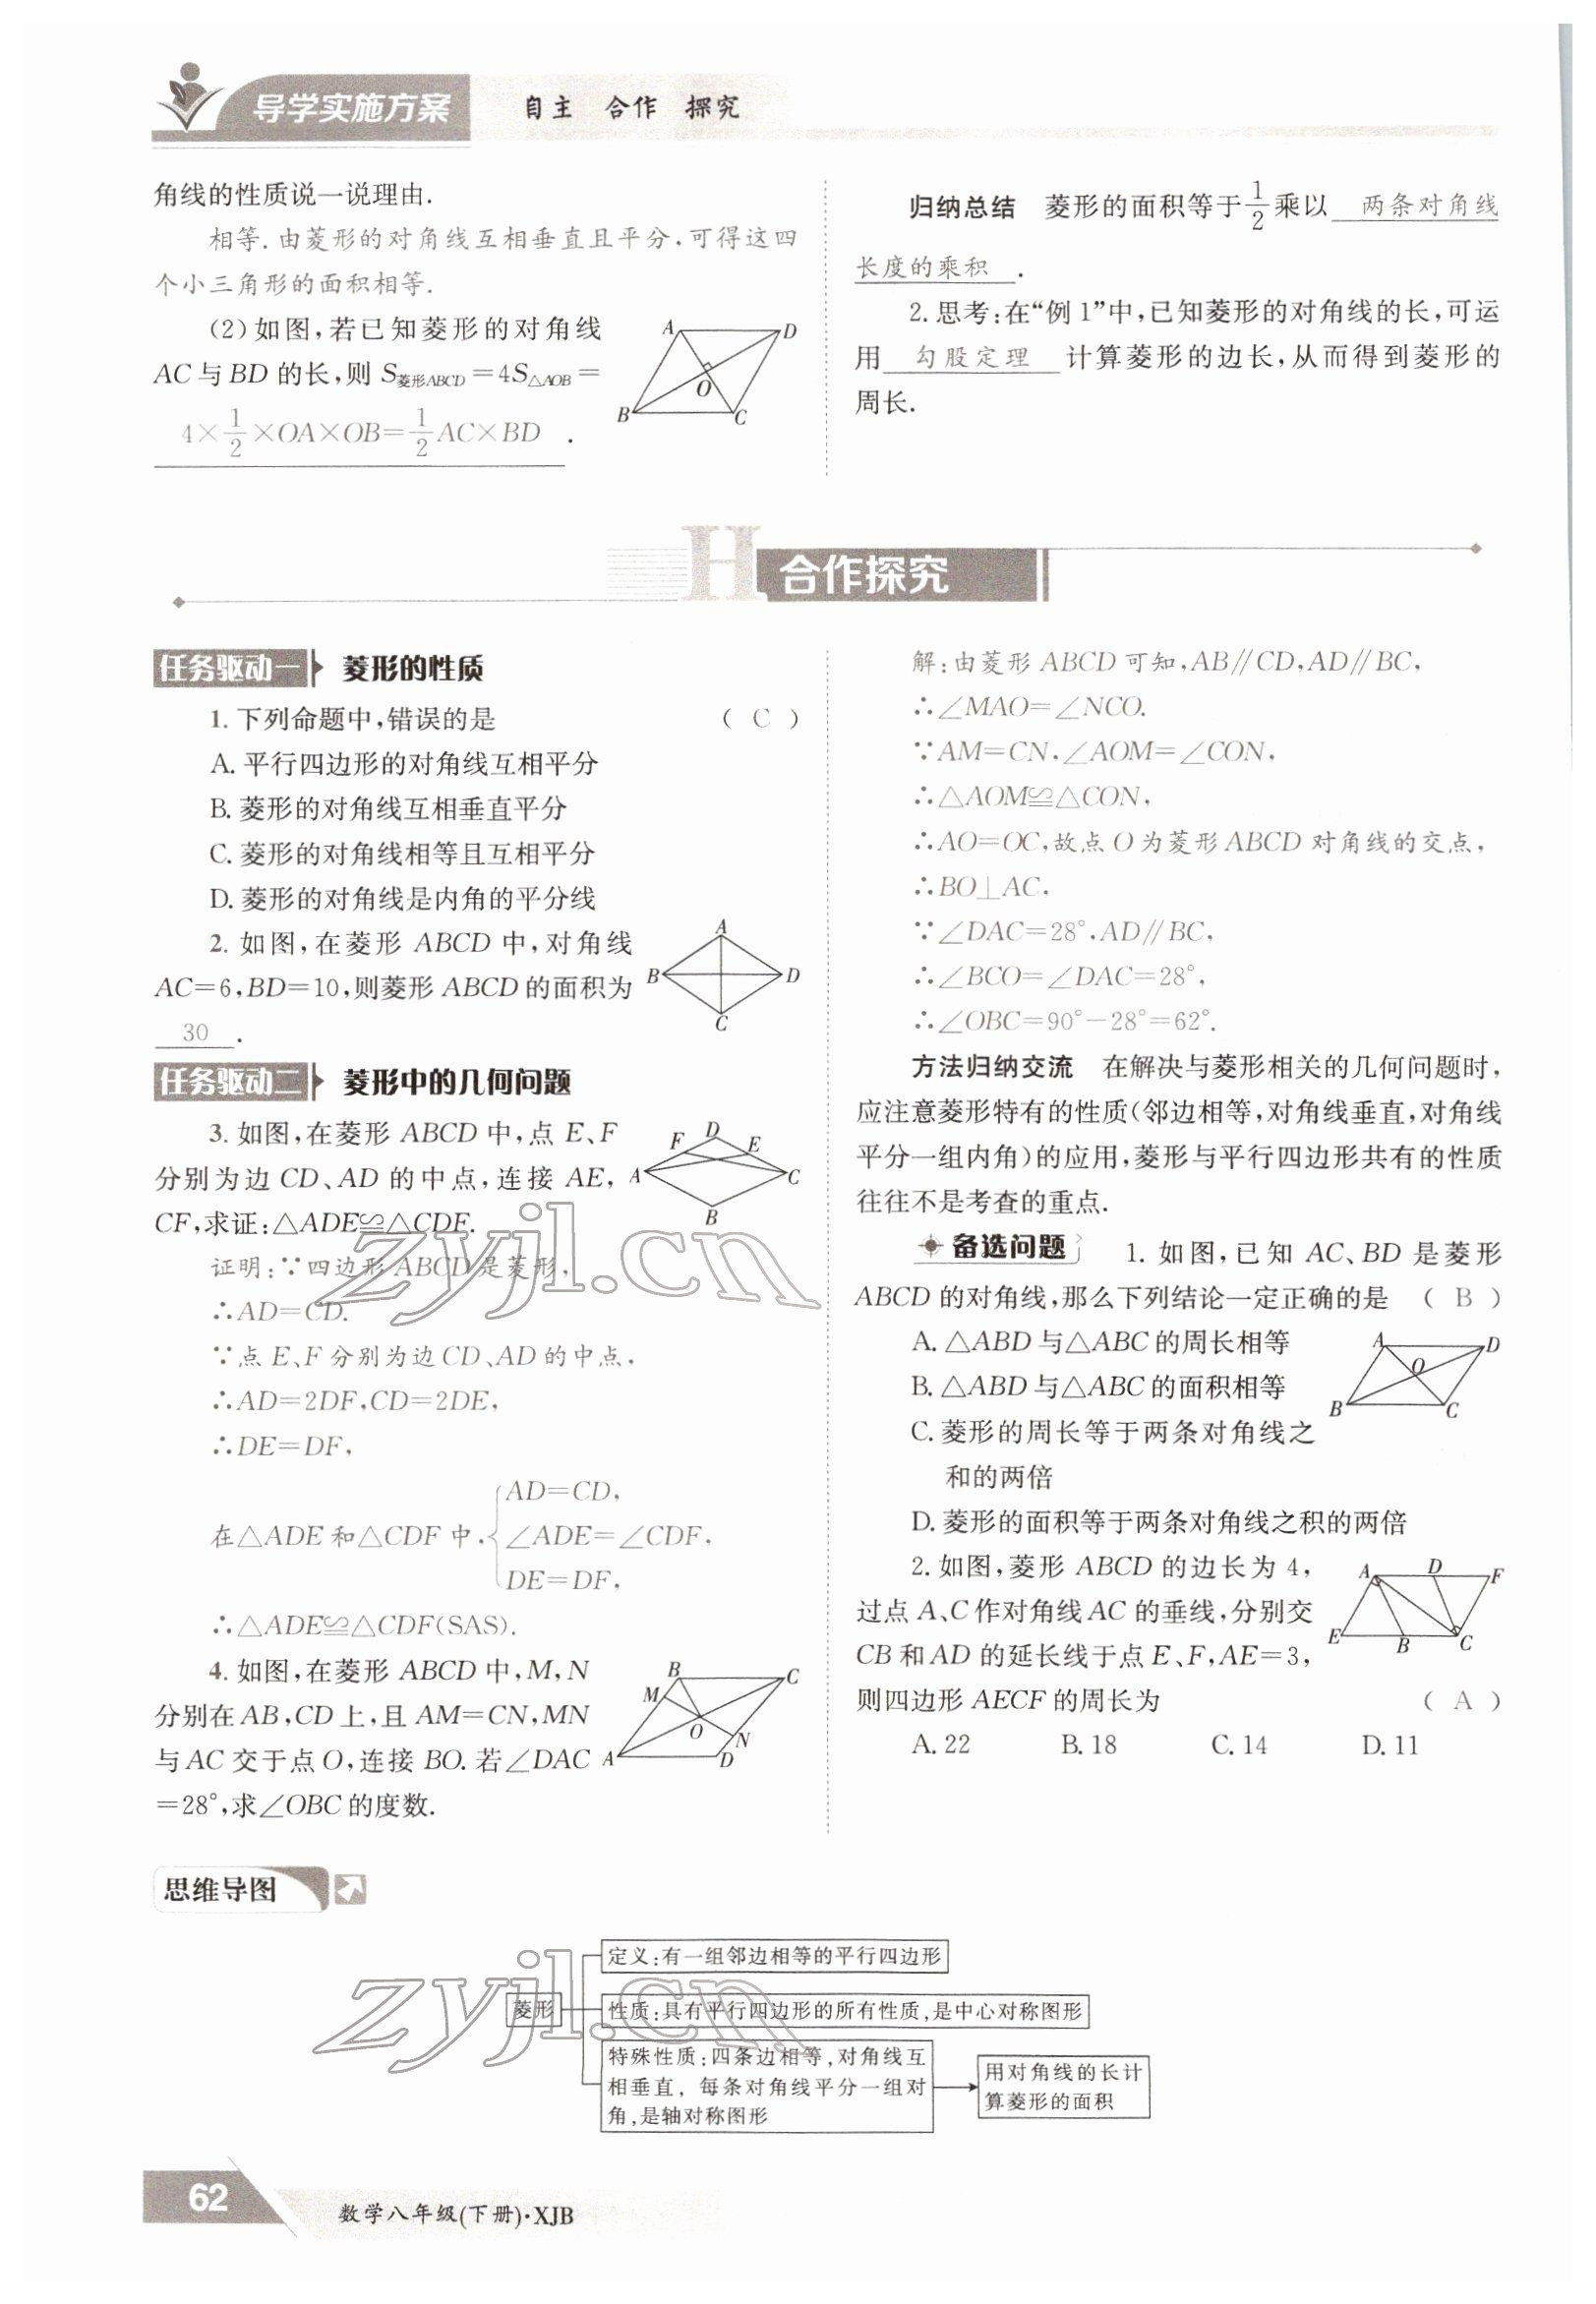 导学实施方案 自主 合作 探究
角线的性质说一说理由.
相等.由菱形的对角线互相垂直且平分,可得这四
个小三角形的面积相等.
(2)如图,若已知菱形的对角线
AC与BD的长,则S菱形ABCD=4S△AOB=
4×1/2×OA×OB=1/2AC×BD.
A D O B C
归纳总结 菱形的面积等于1/2乘以 两条对角线
长度的乘积.
2.思考:在“例1”中,已知菱形的对角线的长,可运
用 勾股定理 计算菱形的边长,从而得到菱形的
周长.
H 合作探究
任务驱动一 菱形的性质
1.下列命题中,错误的是 ( C )
A.平行四边形的对角线互相平分
B.菱形的对角线互相垂直平分
C.菱形的对角线相等且互相平分
D.菱形的对角线是内角的平分线
2.如图,在菱形ABCD中,对角线
AC=6,BD=10,则菱形ABCD的面积为
30.
A B D C
任务驱动二 菱形中的几何问题
3.如图,在菱形ABCD中,点E、F
分别为边CD、AD的中点,连接AE,
CF,求证:△ADE≌△CDF.
F D E A C B
证明:∵四边形ABCD是菱形,
∴AD=CD.
∵点E、F分别为边CD、AD的中点,
∴AD=2DF,CD=2DE,
∴DE=DF,
AD=CD,
在△ADE和△CDF中,{∠ADE=∠CDF,
DE=DF,
∴△ADE≌△CDF(SAS).
4.如图,在菱形ABCD中,M,N
分别在AB,CD上,且AM=CN,MN
与AC交于点O,连接BO.若∠DAC
=28°,求∠OBC的度数.
B C M O N A D
解:由菱形ABCD可知,AB∥CD,AD∥BC,
∴∠MAO=∠NCO.
∵AM=CN,∠AOM=∠CON,
∴△AOM≌△CON,
∴AO=OC,故点O为菱形ABCD对角线的交点,
∴BO⊥AC,
∵∠DAC=28°,AD∥BC,
∴∠BCO=∠DAC=28°,
∴∠OBC=90°-28°=62°.
方法归纳交流 在解决与菱形相关的几何问题时,
应注意菱形特有的性质(邻边相等,对角线垂直,对角线
平分一组内角)的应用,菱形与平行四边形共有的性质
往往不是考查的重点.
备选问题 1.如图,已知AC、BD是菱形
ABCD的对角线,那么下列结论一定正确的是 ( B )
A.△ABD与△ABC的周长相等
B.△ABD与△ABC的面积相等
C.菱形的周长等于两条对角线之
和的两倍
D.菱形的面积等于两条对角线之积的两倍
A D O B C
2.如图,菱形ABCD的边长为4,
过点A、C作对角线AC的垂线,分别交
CB和AD的延长线于点E、F,AE=3,
则四边形AECF的周长为 ( A )
A.22 B.18 C.14 D.11
A D F E B C
思维导图
菱形
定义:有一组邻边相等的平行四边形
性质:具有平行四边形的所有性质,是中心对称图形
特殊性质:四条边相等,对角线互
相垂直,每条对角线平分一组对
角,是轴对称图形
用对角线的长计
算菱形的面积
zyjl.cn
zyjl.cn
62 数学八年级(下册)·XJB